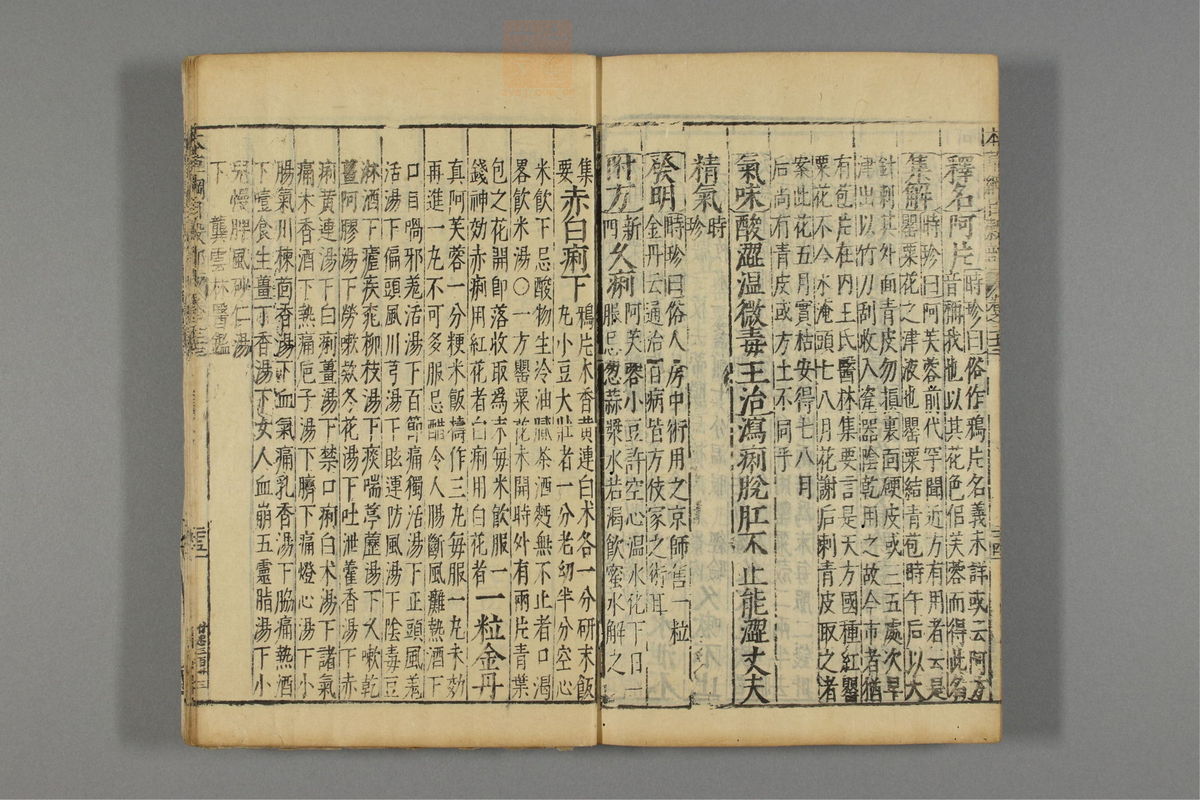 釋名阿片時珍曰俗作鴉片名義未詳或云阿方
音稱我也以其花色似芙蓉而得此名
集解時珍曰阿芙蓉前代罕聞近方有用者云是
罌粟花之津液也罌粟結青苞時午后以大
針刺其外面青皮勿損裏面硬皮或三五處次早
津出以竹刀刮收入瓷器陰乾用之故今市者猶
有苞片在内王氏醫林集要言是天方國種紅罌
粟花不令水淹頭七八月花謝后刺青皮取之者
案此花五月實枯安得七八月
后尚有青皮或方土不同乎
氣味酸澀温微毒主治瀉痢脫肛不止能澀丈夫
精氣時珍
發明時珍曰俗人房中術用之京師售一粒
金丹云通治百病皆方伎家之術耳
附方新四久痢阿芙蓉小豆許空心温水化下日一
服忌葱蒜漿水若渴飲蜜水解之
集要赤白痢下鴉片木香黃連白术各一分研末飯
丸小豆大壯者一分老幼半分空心
米飲下忌酸物生冷油膩茶酒麪無不止者口渴
畧飲米湯○一方罌粟花未開時外有兩片青葉
包之花開即落收取為末每米飲服一
錢神効赤痢用紅花者白痢用白花者一粒金丹
真阿芙蓉一分粳米飯擣作三丸每服一丸未効
再進一丸不可多服忌醋令人腸斷風癱熱酒下
口目喎邪羗活湯下百節痛獨活湯下正頭風羗
活湯下偏頭風川芎湯下眩運防風湯下陰毒豆
淋酒下瘧疾桃柳枝湯下痰喘葶藶湯下久嗽乾
薑阿膠湯下勞嗽欵冬花湯下吐泄藿香湯下赤
痢黃連湯下白痢薑湯下禁口痢白术湯下諸氣
痛木香酒下熱痛梔子湯下臍下痛燈心湯下小
腸氣川楝茴香湯下血氣痛乳香湯下脇痛熱酒
下噎食生薑丁香湯下女人血崩五靈脂湯下小
兒慢脾風砂仁湯
下龔雲林醫鑑